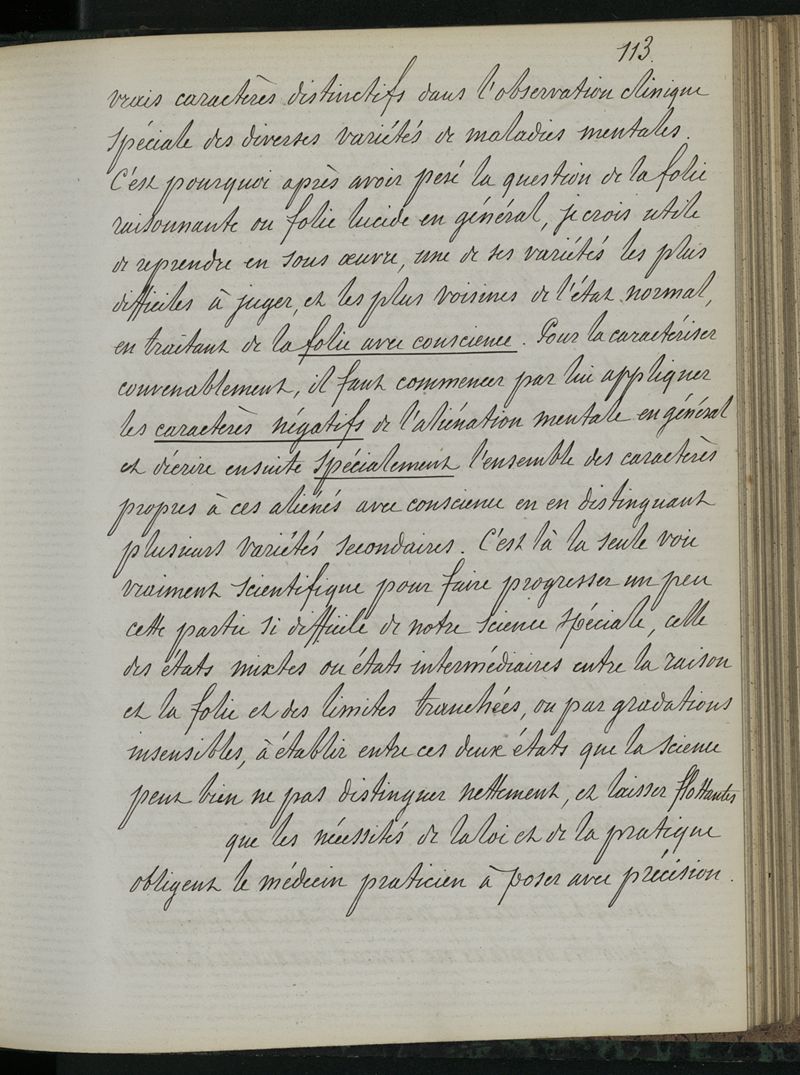 113.
vrais caractères distinctifs dans l'observation clinique
spéciale des diverses variétés de maladies mentales.
C'est pourquoi après avoir pesé la question de la folie
raisonnante ou folie lucide en général, je crois utile
de reprendre en sous œuvre, une de ses variétés les plus
difficiles à juger, et les plus voisines de l'état normal,
en traitant de la folie avec conscience. Pour la caractériser
convenablement, il faut commencer par lui appliquer
les caractères négatifs de l'aliénation mentale en général
et décrire ensuite spécialement l'ensemble des caractères
propres à ces aliénés avec conscience en en distinguant
plusieurs variétés secondaires. C'est là la seule voie
vraiment scientifique pour faire progresser un peu
cette partie si difficile de notre science spéciale, celle
des états mixtes ou états intermédiaires entre la raison
et la folie et des limites tranchées, ou par gradations
insensibles, à établir entre ces deux états que la science
peut bien ne pas distinguer nettement, et laisser flottantes
que les nécessités de la loi et de la pratique
obligent le médecin praticien à poser avec précision.